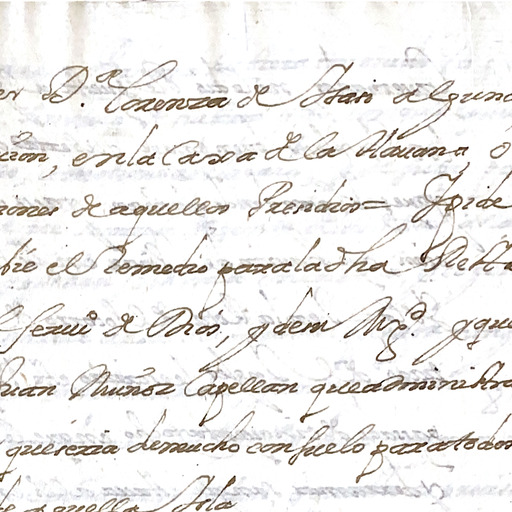 er D.ª Lorenza de Atari alguna
cion, en la Caxa de la Hauana, ó
ciones de aquellos Presidios= Ypide
bie el Remedio paraladha
l seruiº de Dios, y dem Mgd. y que
Juan Muñoz Capellan queadministra
queseria demucho consuelo paratodos
de aquella Isla